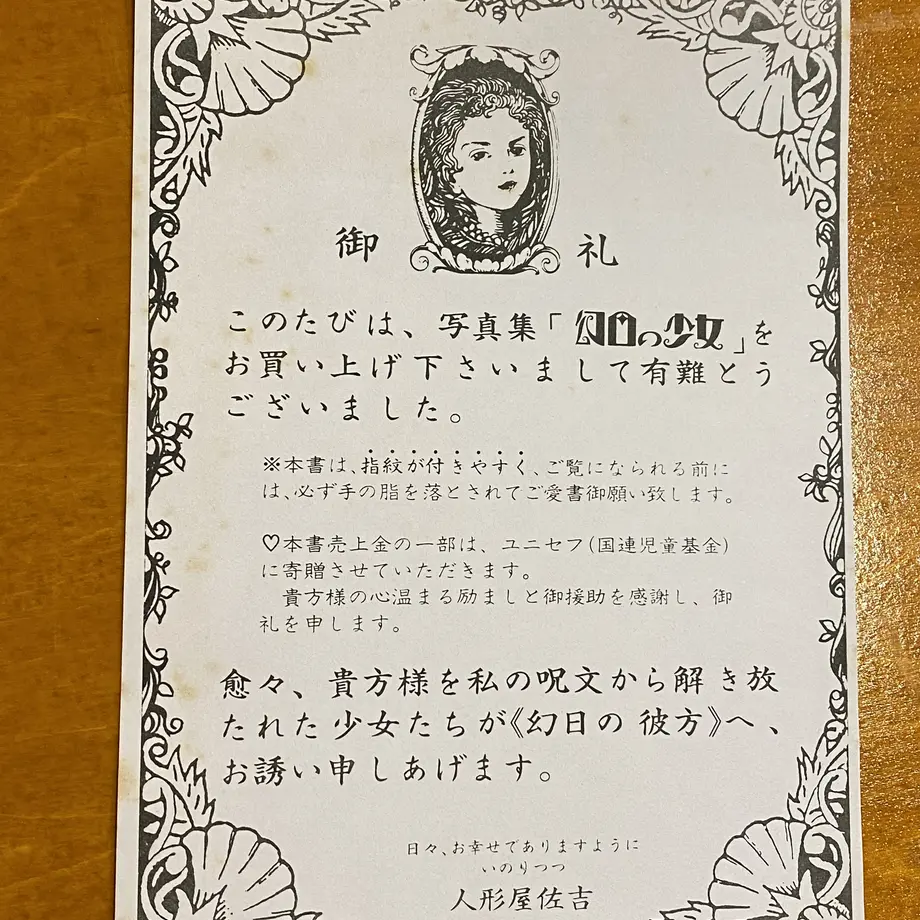 御 礼
このたびは、写真集「幻日の少女」を
お買い上げ下さいまして有難とう
ございました。
※本書は、指紋が付きやすく、ご覧になられる前に
は、必ず手の脂を落とされてご愛書御願い致します。
♡本書売上金の一部は、ユニセフ(国連児童基金)
に寄贈させていただきます。
貴方様の心温まる励ましと御援助を感謝し、御
礼を申します。
愈々、貴方様を私の呪文から解き放
たれた少女たちが《幻日の彼方》へ、
お誘い申しあげます。
日々、お幸せでありますように
いのりつつ
人形屋佐吉